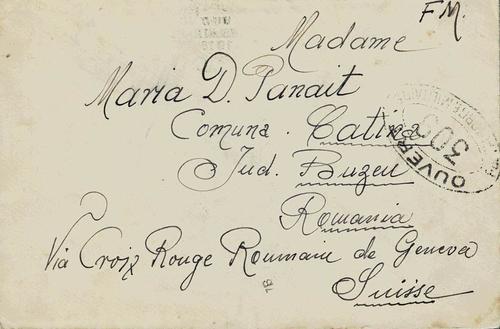 FM.
Madame
Maria D. Panait
Comuna . Catina
Jud. Buzeu
Romania
Via Croix Rouge Roumain de Geneva
Suisse
OUVERT
303